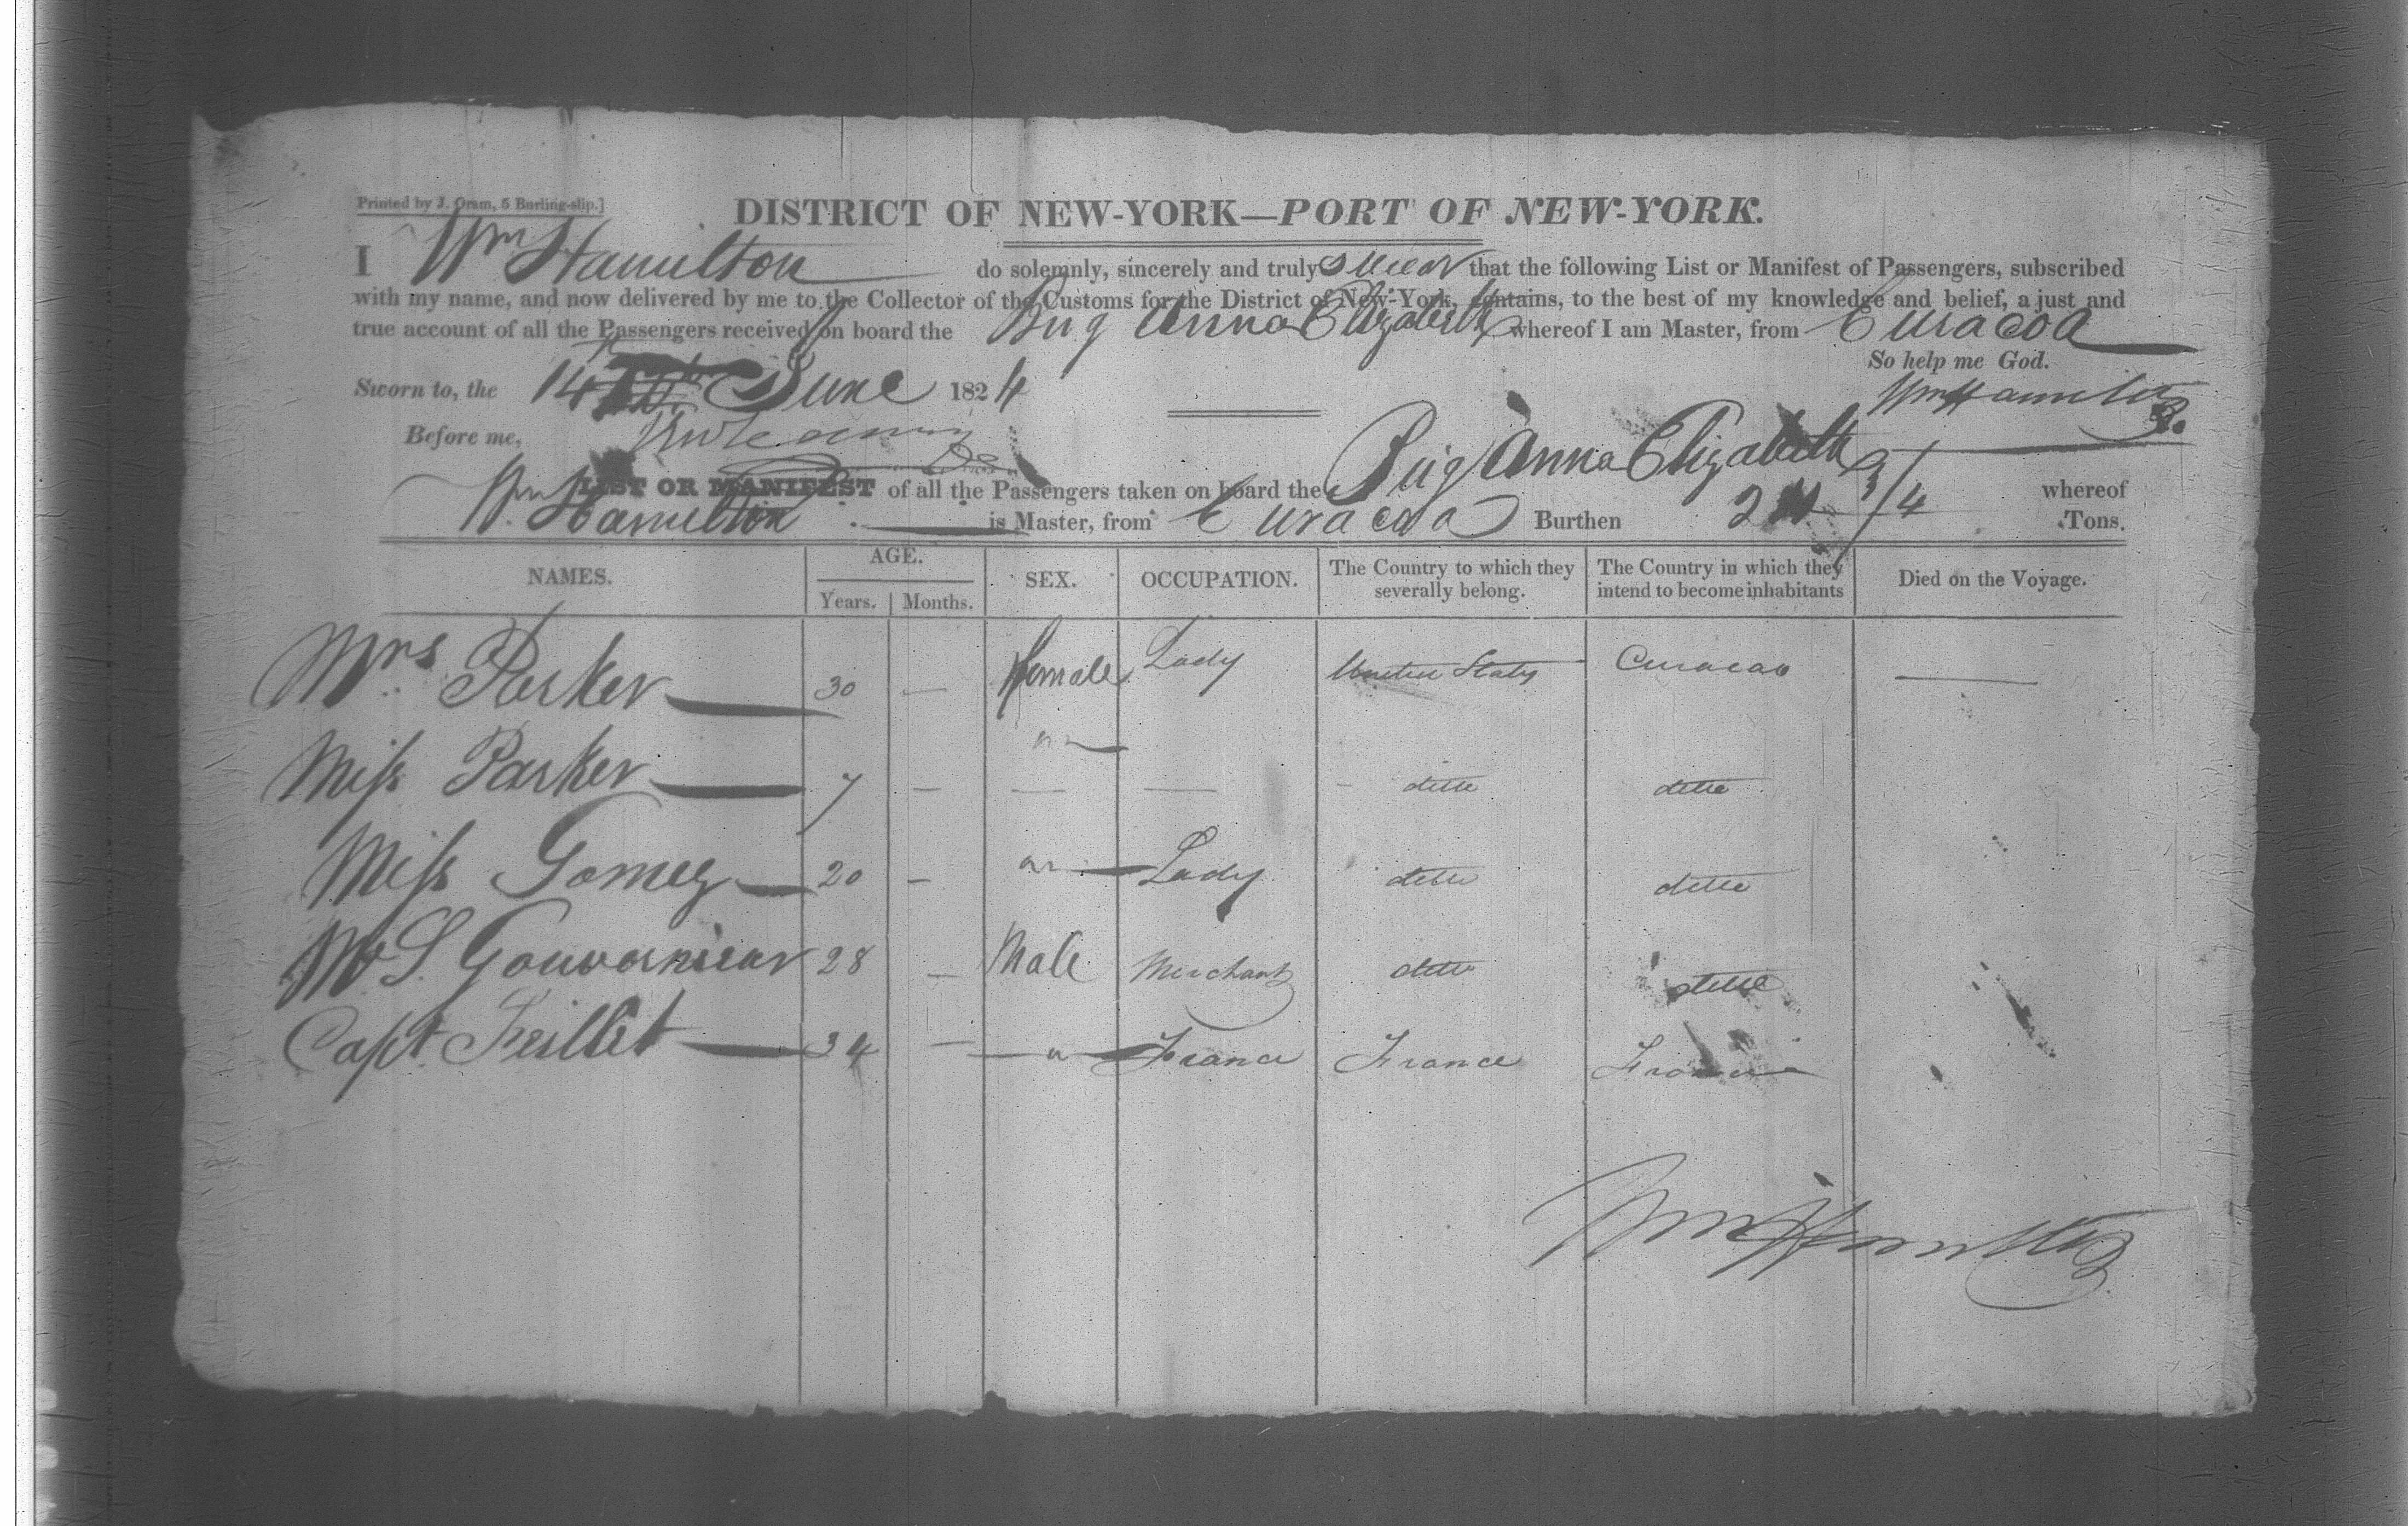 Printed by J. Oram, 5 Burling-slip.]
DISTRICT OF NEW-YORK—PORT OF NEW-YORK.
I Wm Hamilton do solemnly, sincerely and truly swear that the following List or Manifest of Passengers, subscribed
with my name, and now delivered by me to the Collector of the Customs for the District of New-York, contains, to the best of my knowledge and belief, a just and
true account of all the Passengers received on board the Brig Anna Elizabeth whereof I am Master, from Curacoa
So help me God.
Sworn to, the 14 June 1824
Wm Hamilton
Before me,
LIST OR MANIFEST of all the Passengers taken on board the Brig Anna Elizabeth whereof
Wm Hamilton is Master, from Curacoa Burthen Tons.
NAMES. AGE. SEX. OCCUPATION. The Country to which they severally belong. The Country in which they intend to become inhabitants Died on the Voyage.
Years. Months.
Mrs Parker 30 — female Lady United States Curacao —
Miss Parker 7 — — — ditto ditto
Miss Gomez 20 — Lady ditto ditto
Mr S. Gouverneur 28 — Male Merchant ditto ditto
Capt. 34 — France France France
Wm Hamilton